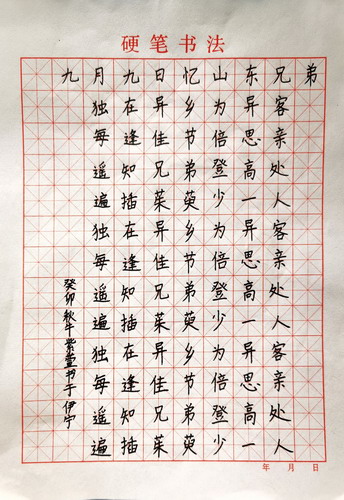 硬笔书法
九月九日忆山东兄弟
独在异乡为异客
每逢佳节倍思亲
遥知兄弟登高处
遍插茱萸少一人
独在异乡为异客
每逢佳节倍思亲
遥知兄弟登高处
遍插茱萸少一人
独在异乡为异客
每逢佳节倍思亲
遥知兄弟登高处
遍插茱萸少一人
癸卯秋牛紫萱书于伊宁
年 月 日